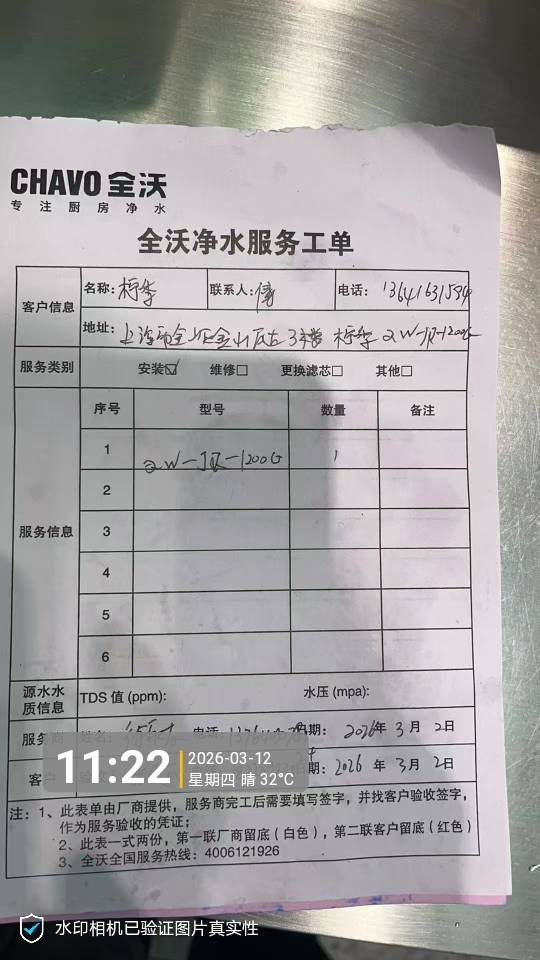 CHAVO 全沃
专注厨房净水
全沃净水服务工单
客户信息 名称: 联系人: 电话:
地址: 上海
服务类别 安装☑ 维修□ 更换滤芯□ 其他□
服务信息 序号 型号 数量 备注
1 QW-JR-1200G 1
2
3
4
5
6
源水水质信息 TDS 值 (ppm): 水压 (mpa):
服务商 姓名: 电话: 日期: 2026年 3月 2日
客户 日期: 2026年 3月 2日
11:22 2026-03-12
星期四 晴 32℃
注: 1、此表单由厂商提供，服务商完工后需要填写签字，并找客户验收签字，
作为服务验收的凭证；
2、此表一式两份，第一联厂商留底（白色），第二联客户留底（红色）
3、全沃全国服务热线: 4006121926
水印相机已验证图片真实性